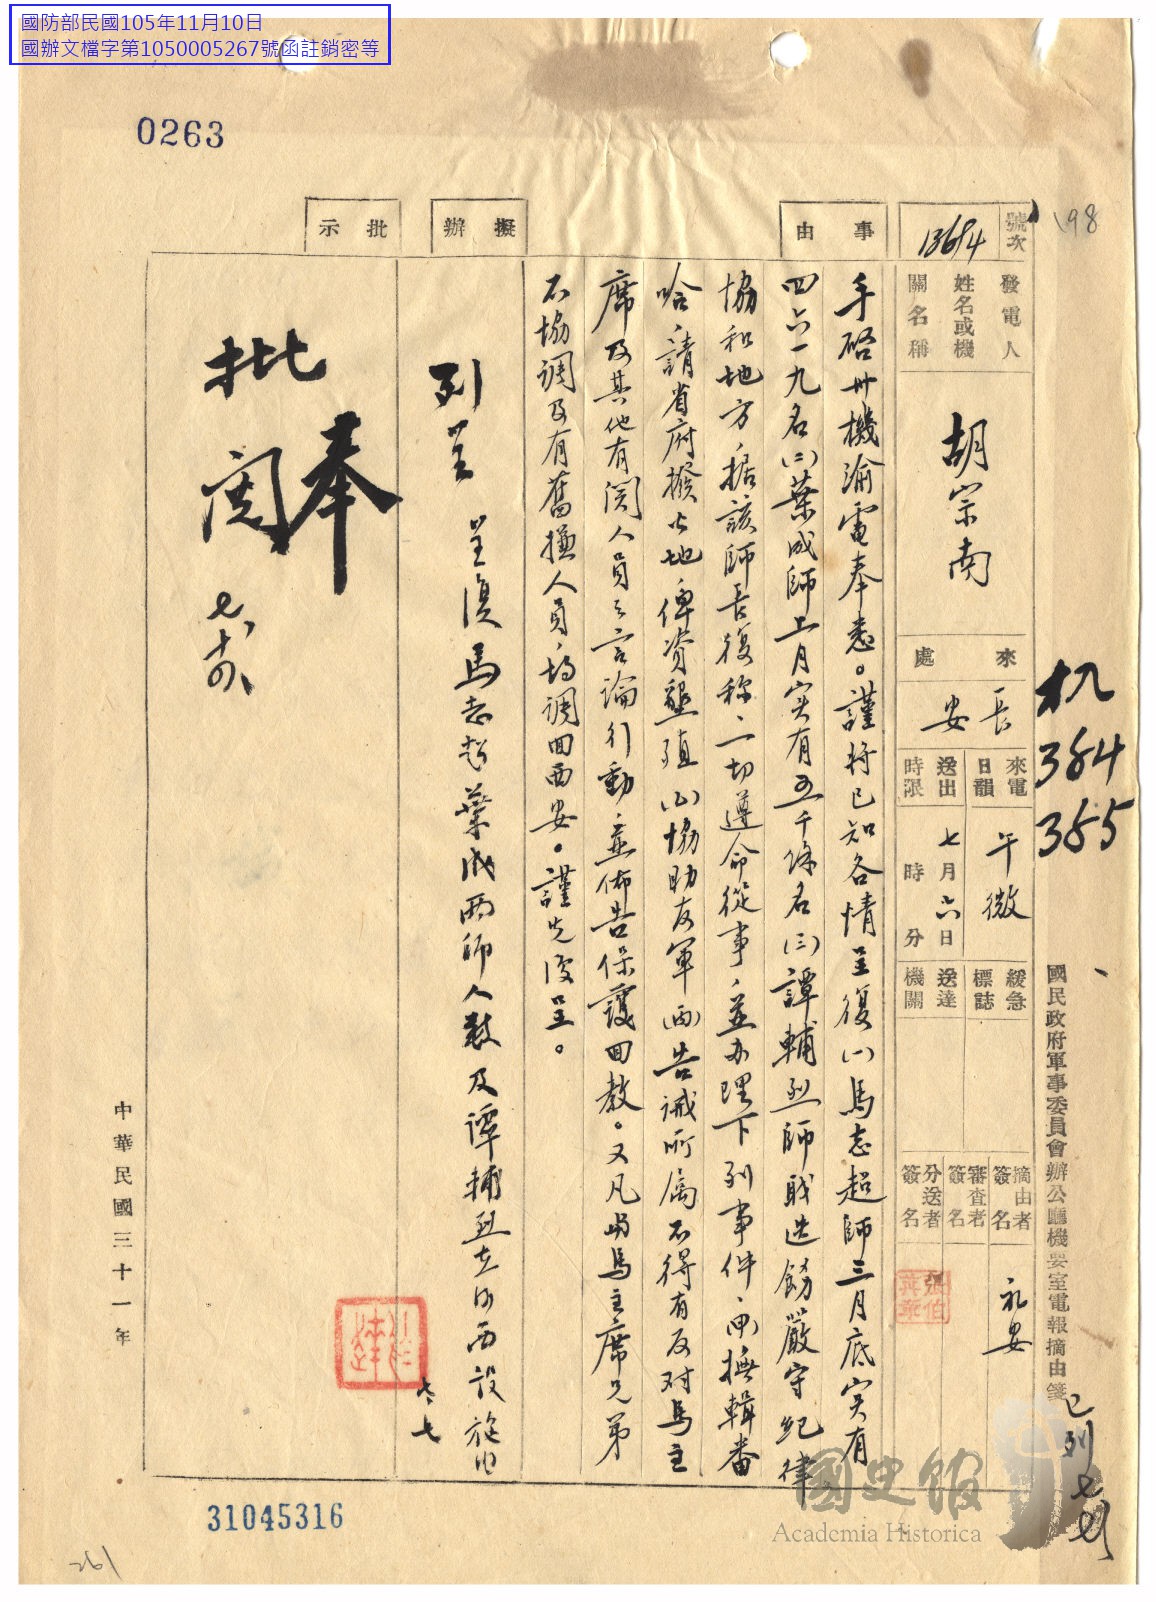 國防部民國105年11月10日
國辦文檔字第1050005267號函註銷密等
0263
198
號次
13694
事由
擬辦
批示
發電人
姓名或機
關名稱
胡宗南
來處
長安
來電
日韻
午微
送出
時限
七月六日
時分
緩急
標誌
送達
機關
摘由者
簽名
審查者
簽名
分送者
簽名
机
384
385
國民政府軍事委員會辦公廳機要室電報摘由箋
已列
手啓卅機渝電奉悉。謹將已知各情呈復(一)馬志超師三月底实有
四六一九名(二)葉成師上月实有五千餘名(三)譚輔烈師戝迭飭嚴守紀律
協和地方,据該師長復称,一切遵命從事,並办理下列事件,(甲)撫輯番
哈,請省府撥与地俾資墾殖(乙)協助友軍(丙)告誡所属不得有反对馬主
席及其他有関人員之言論行動,並佈告保護回教。又凡與馬主席兄弟
不協調及有舊嫌人員,均調回西安。謹先復呈。
列呈
呈復馬志超葉成兩師人數及譚輔烈在河西設施由
七、七
奉
批閱
七、十四、
中華民國三十一年
31045316
261
國史館
Academia Historica